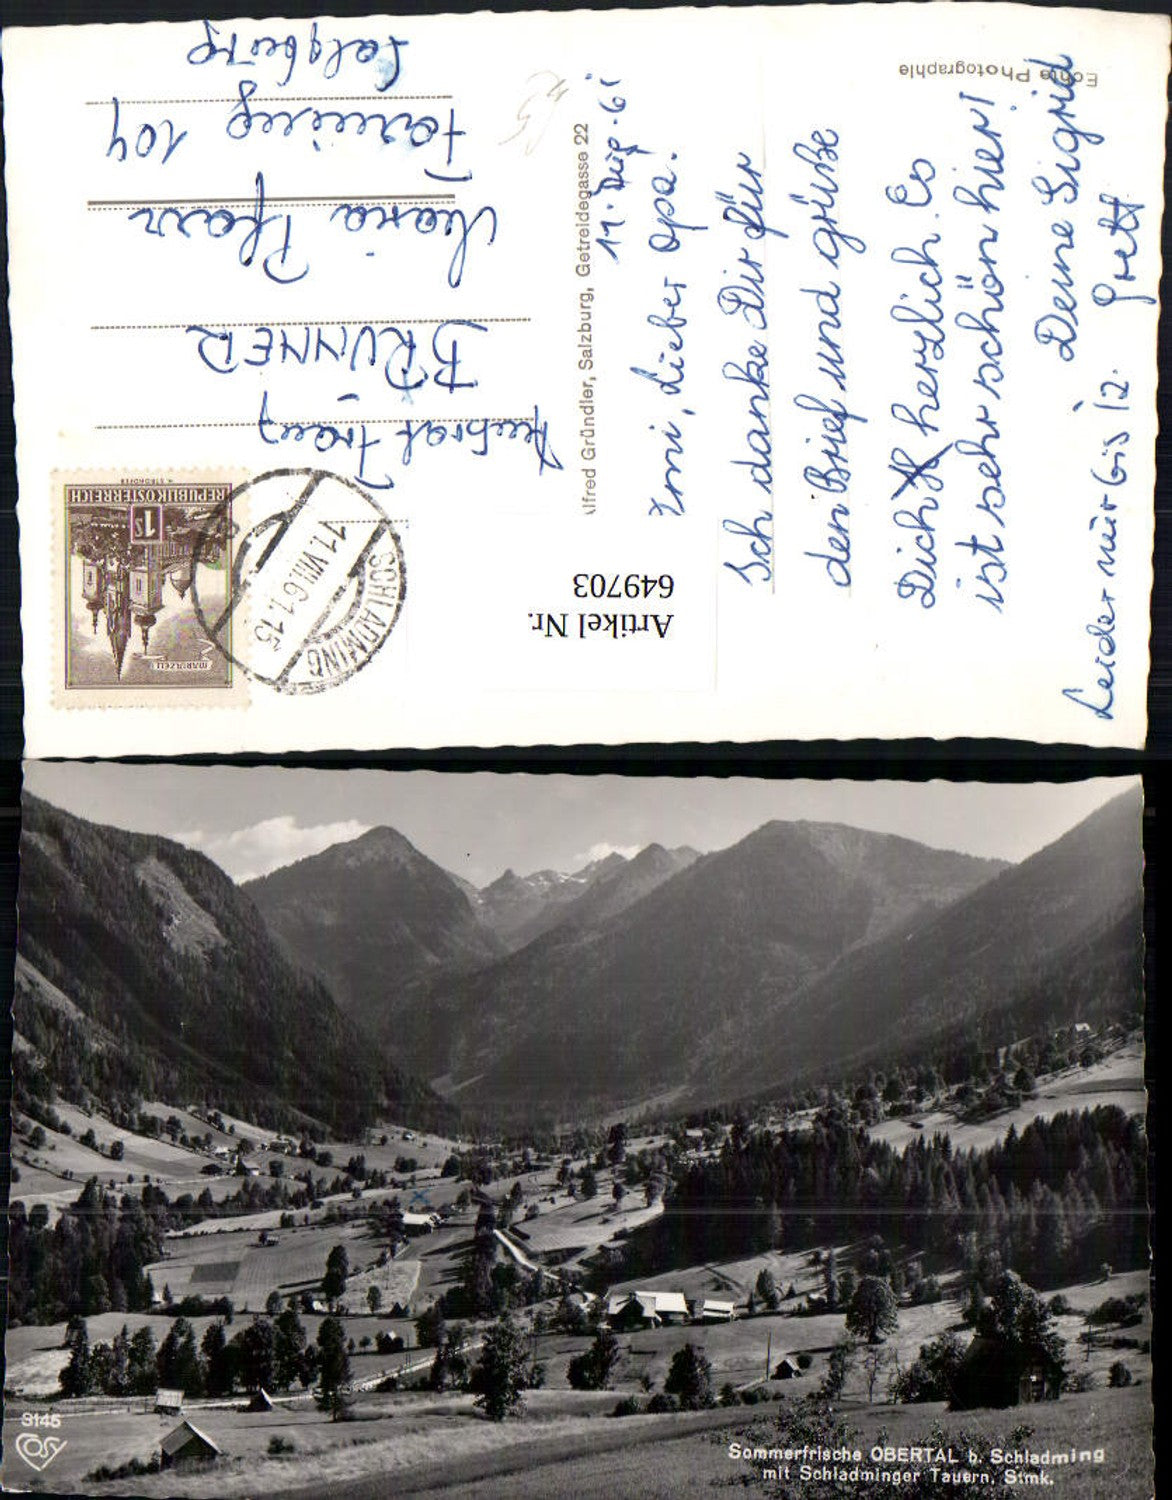 Echte Photographie
11. Aug. 61
Imi, Lieber Opa.
Ich danke Dir für
den Brief und grüße
Dich herzlich. Es
ist sehr schön hier!
Deine Sigrid
Leider nur bis 12.
lfred Gründler, Salzburg, Getreidegasse 22
REPUBLIK ÖSTERREICH
1s
MARIAZELL
SCHLADMING
11.VIII.61.15
BRUNNER
Maria Pfarr
104
Salzburg
Artikel Nr.
649703
3145
COSY
Sommerfrische OBERTAL b. Schladming
mit Schladminger Tauern, Stmk.